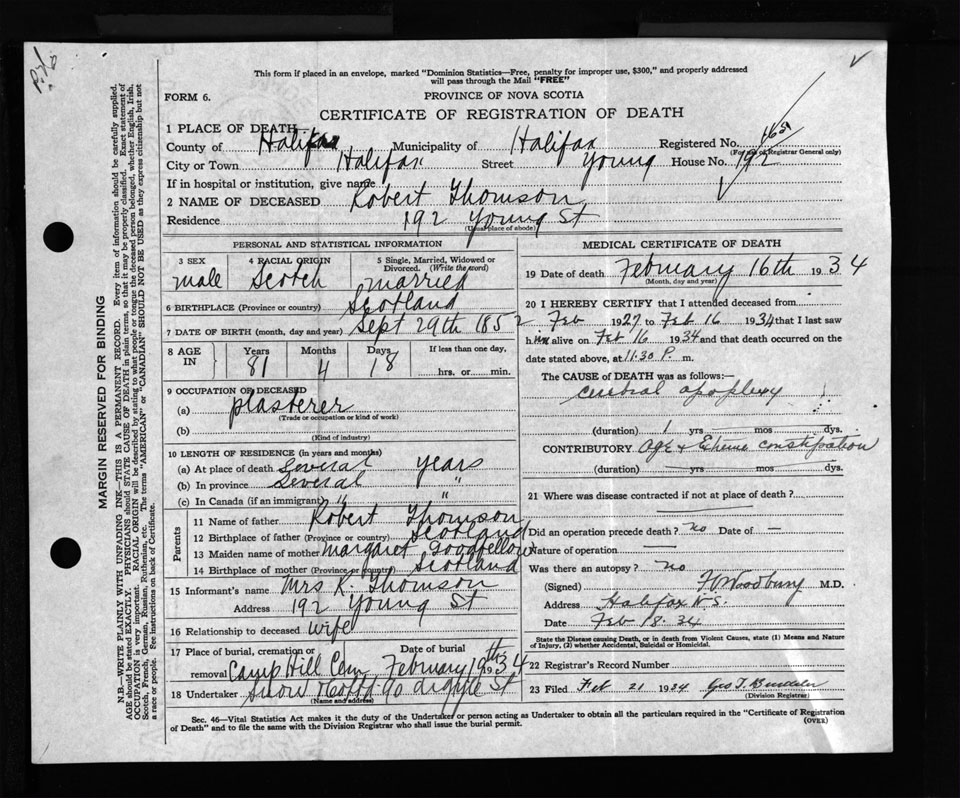 This form if placed in an envelope, marked "Dominion Statistics—Free, penalty for improper use, $300," and properly addressed
will pass through the Mail "FREE"
FORM 6.
PROVINCE OF NOVA SCOTIA
CERTIFICATE OF REGISTRATION OF DEATH
1 PLACE OF DEATH
County of Halifax Municipality of Halifax Registered No.
(For use of Registrar General only)
City or Town Halifax Street Young House No. 192
If in hospital or institution, give name
2 NAME OF DECEASED Robert Thomson
Residence 192 Young St
(Usual place of abode)
PERSONAL AND STATISTICAL INFORMATION
3 SEX male
4 RACIAL ORIGIN Scotch
5 Single, Married, Widowed or Divorced. (Write the word) married
6 BIRTHPLACE (Province or country) Scotland
7 DATE OF BIRTH (month, day and year) Sept 29th 1852
8 AGE IN Years 81 Months 4 Days 18 If less than one day, hrs. or min.
9 OCCUPATION OF DECEASED
(a) plasterer
(Trade or occupation or kind of work)
(b)
(Kind of industry)
10 LENGTH OF RESIDENCE (in years and months)
(a) At place of death Several years
(b) In province Several "
(c) In Canada (if an immigrant) " "
Parents
11 Name of father Robert Thomson
12 Birthplace of father (Province or country) Scotland
13 Maiden name of mother Margaret Goodfellow
14 Birthplace of mother (Province or country) Scotland
15 Informant's name Mrs R. Thomson
Address 192 Young St
16 Relationship to deceased wife
17 Place of burial, cremation or removal Camp Hill Cem Date of burial February 19th 1934
18 Undertaker Snow & Co Ltd 90 Argyle St
(Name and address)
MEDICAL CERTIFICATE OF DEATH
19 Date of death February 16th 1934
(Month, day and year)
20 I HEREBY CERTIFY that I attended deceased from
Feb 1927 to Feb 16 1934 that I last saw
him alive on Feb 16 1934 and that death occurred on the
date stated above, at 11.30 P. m.
The CAUSE of DEATH was as follows:—
cerebral apoplexy
(duration) 1 yrs mos dys.
CONTRIBUTORY Age & Extreme constipation
(duration) yrs mos dys.
21 Where was disease contracted if not at place of death?
Did an operation precede death? no Date of —
Nature of operation —
Was there an autopsy? no
(Signed) F. Woodbury M.D.
Address Halifax N.S.
Date Feb 18. 34
State the Disease causing Death, or in death from Violent Causes, state (1) Means and Nature
of Injury, (2) whether Accidental, Suicidal or Homicidal.
22 Registrar's Record Number
23 Filed Feb 21 1934 Geo T.
(Division Registrar)
Sec. 46—Vital Statistics Act makes it the duty of the Undertaker or person acting as Undertaker to obtain all the particulars required in the "Certificate of Registration
of Death" and to file the same with the Division Registrar who shall issue the burial permit.
(OVER)
MARGIN RESERVED FOR BINDING
N.B.—WRITE PLAINLY WITH UNFADING INK—THIS IS A PERMANENT RECORD. Every item of information should be carefully supplied.
AGE should be stated EXACTLY. PHYSICIANS should STATE CAUSE OF DEATH in plain terms, so that it may be properly classified. Exact statement of
OCCUPATION is very important. RACIAL ORIGIN will be described by stating to what people or tongue the deceased person belonged, whether English, Irish,
Scotch, French, German, Russian, Ruthenian, etc. The terms "AMERICAN" or "CANADIAN" SHOULD NOT BE USED as they express citizenship but not
a race or people. See instructions on back of Certificate.